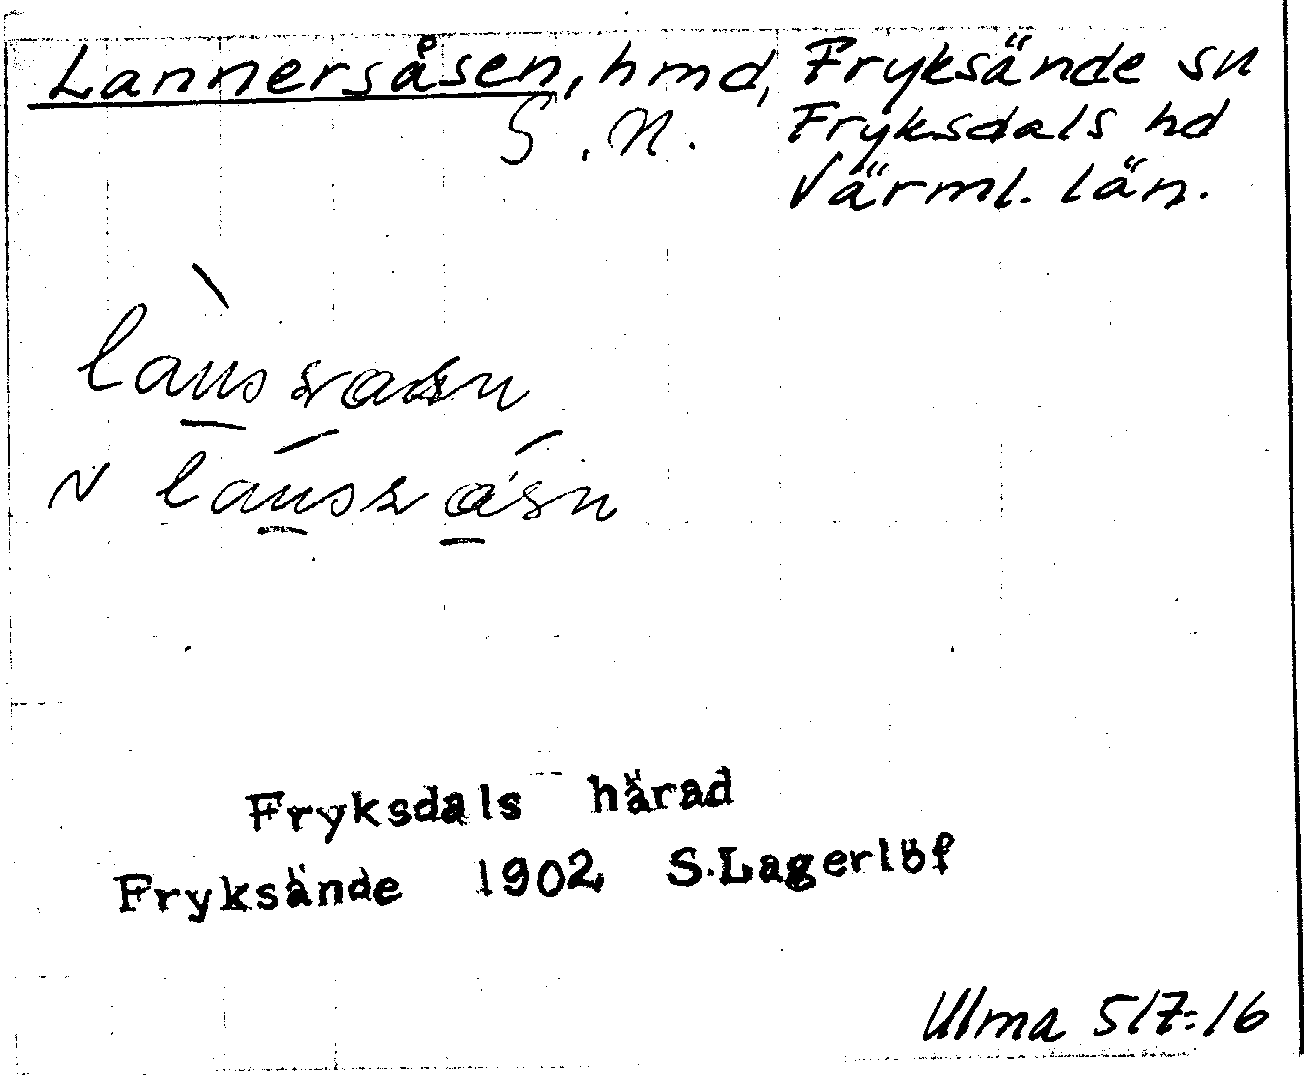 Lannersåsen, hmd, Fryksände sn
S. N. Fryksdals hd
Värml. län.
Fryksdals härad
Fryksände 1902 S.Lagerlöf
Ulma 517:16